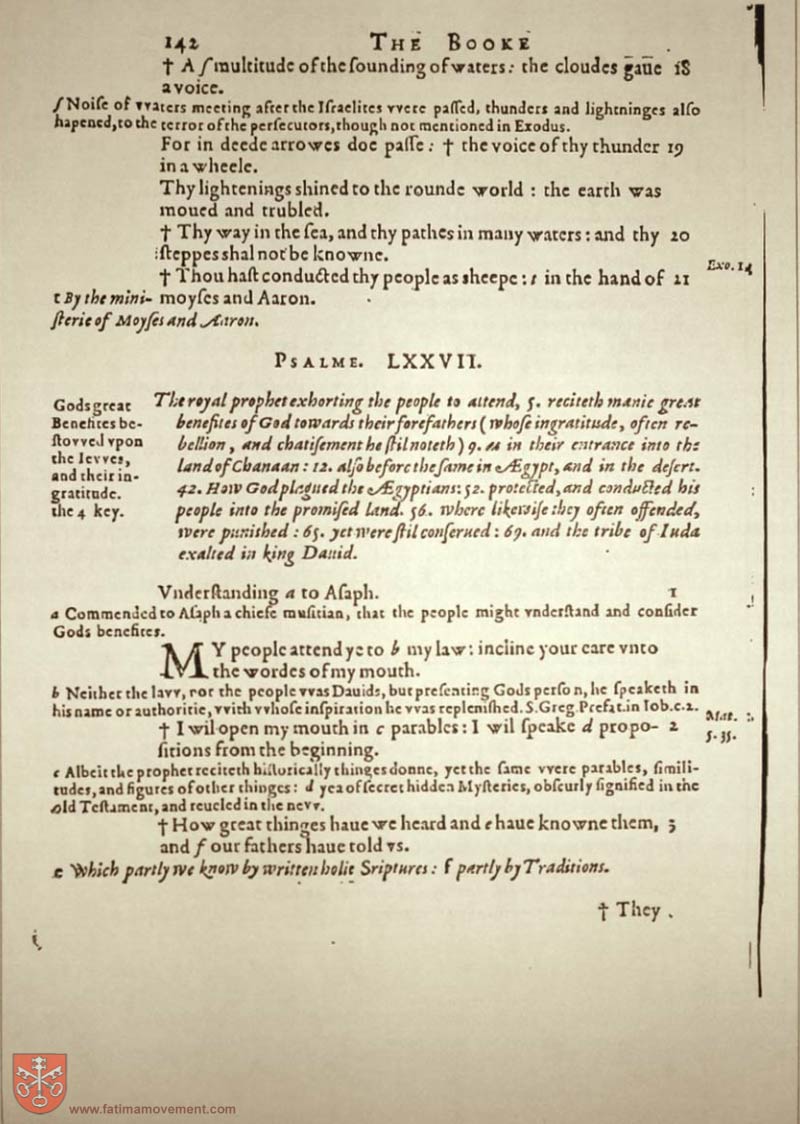 142 THE BOOKE
† A ſ multitude of the ſounding of waters: the cloudes gaue 18
a voice.
ſ Noiſe of vvaters meeting after the Iſraelites vvere paſſed, thunders and lightninges alſo
hapened, to the terror of the perſecutors, though not mentioned in Exodus.
For in deede arrowes doe paſſe: † the voice of thy thunder 19
in a wheele.
Thy lightenings shined to the rounde world : the earth was
moued and trubled.
† Thy way in the ſea, and thy pathes in many waters: and thy 20
ſteppes shal not be knowne.
† Thou haſt conducted thy people as sheepe: t in the hand of 21
Exo. 14
moyſes and Aaron.
t By the mini-
ſterie of Moyſes and Aaron.
PSALME. LXXVII.
Gods great
Benefites be-
ſtovved vpon
the Ievves,
and their in-
gratitude.
the 4 key.
The royal prophet exhorting the people to attend, 5. reciteth manie great
benefites of God towards their forefathers (whoſe ingratitude, often re-
bellion, and chatiſement he ſtil noteth) 9. as in their entrance into the
land of Chanaan: 12. alſo before the ſame in Ægypt, and in the deſert.
42. How God plagued the Ægyptians: 52. protected, and conducted his
people into the promiſed land. 56. where likewiſe they often offended,
were punished: 65. yet were ſtil conſerued: 69. and the tribe of Iuda
exalted in king Dauid.
Vnderſtanding a to Aſaph. 1
a Commended to Aſaph a chiefe muſitian, that the people might vnderſtand and conſider
Gods benefites.
MY people attend ye to b my law: incline your eare vnto
the wordes of my mouth.
b Neither the lavv, nor the people vvas Dauids, but preſenting Gods perſon, he ſpeaketh in
his name or authoritie, vvith vvhoſe inſpiration he vvas repleniſhed. S. Greg. Prefat. in Iob. c. 2.
† I wil open my mouth in c parables: I wil ſpeake d propo- 2
Mat.
ſitions from the beginning.
c Albeit the prophet reciteth hiſtorically thinges donne, yet the ſame vvere parables, ſimili-
tudes, and figures of other thinges: d yea of ſecret hidden Myſteries, obſcurly ſignified in the
old Teſtament, and reueled in the nevv.
† How great thinges haue we heard and e haue knowne them, 3
and f our fathers haue told vs.
e Which partly we know by written holie Scriptures: f partly by Traditions.
† They
www.fatimamovement.com